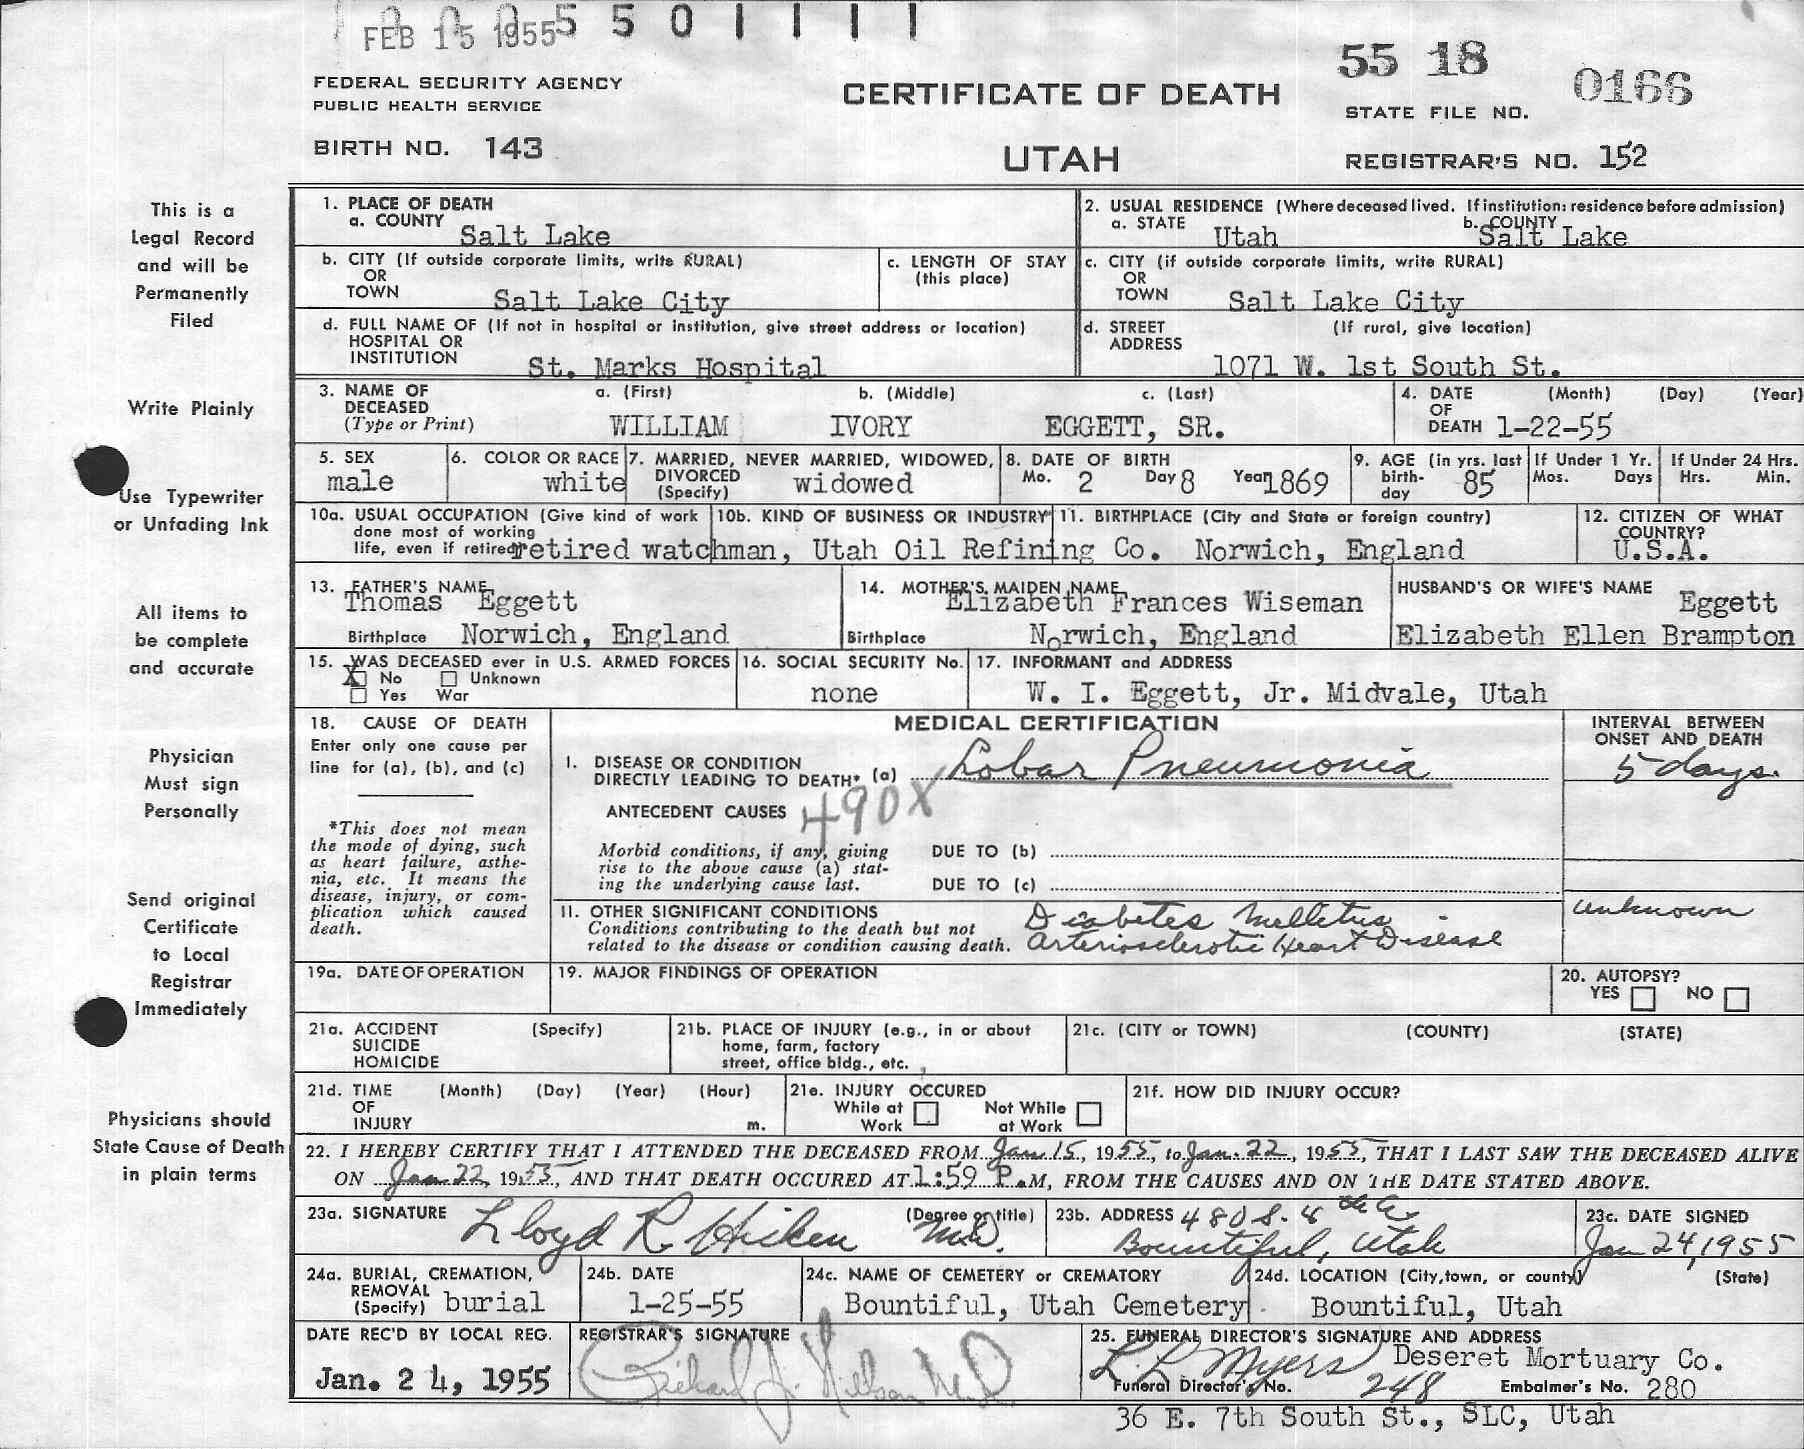 FEB 15 1955 5 5 0 1 1 1 1
FEDERAL SECURITY AGENCY
PUBLIC HEALTH SERVICE
BIRTH NO. 143
CERTIFICATE OF DEATH
UTAH
55 18 0166
STATE FILE NO.
REGISTRAR'S NO. 152
This is a
Legal Record
and will be
Permanently
Filed
Write Plainly
Use Typewriter
or Unfading Ink
All items to
be complete
and accurate
Physician
Must sign
Personally
Send original
Certificate
to Local
Registrar
Immediately
Physicians should
State Cause of Death
in plain terms
1. PLACE OF DEATH
a. COUNTY Salt Lake
2. USUAL RESIDENCE (Where deceased lived. If institution: residence before admission)
a. STATE Utah b. COUNTY Salt Lake
b. CITY (If outside corporate limits, write RURAL)
OR
TOWN Salt Lake City
c. LENGTH OF STAY
(this place)
c. CITY (if outside corporate limits, write RURAL)
OR
TOWN Salt Lake City
d. FULL NAME OF (If not in hospital or institution, give street address or location)
HOSPITAL OR
INSTITUTION St. Marks Hospital
d. STREET (If rural, give location)
ADDRESS 1071 W. 1st South St.
3. NAME OF a. (First) b. (Middle) c. (Last)
DECEASED
(Type or Print) WILLIAM IVORY EGGETT, SR.
4. DATE (Month) (Day) (Year)
OF
DEATH 1-22-55
5. SEX
male
6. COLOR OR RACE
white
7. MARRIED, NEVER MARRIED, WIDOWED,
DIVORCED
(Specify) widowed
8. DATE OF BIRTH
Mo. 2 Day 8 Year 1869
9. AGE (in yrs. last
birth-
day 85
If Under 1 Yr.
Mos. Days
If Under 24 Hrs.
Hrs. Min.
10a. USUAL OCCUPATION (Give kind of work
done most of working
life, even if retired) retired watchman, Utah Oil Refining Co.
10b. KIND OF BUSINESS OR INDUSTRY
11. BIRTHPLACE (City and State or foreign country)
Norwich, England
12. CITIZEN OF WHAT
COUNTRY?
U.S.A.
13. FATHER'S NAME
Thomas Eggett
Birthplace Norwich, England
14. MOTHER'S MAIDEN NAME
Elizabeth Frances Wiseman
Birthplace Norwich, England
HUSBAND'S OR WIFE'S NAME
Eggett
Elizabeth Ellen Brampton
15. WAS DECEASED ever in U.S. ARMED FORCES
X No Unknown
Yes War
16. SOCIAL SECURITY No.
none
17. INFORMANT and ADDRESS
W. I. Eggett, Jr. Midvale, Utah
18. CAUSE OF DEATH
Enter only one cause per
line for (a), (b), and (c)
*This does not mean
the mode of dying, such
as heart failure, asthe-
nia, etc. It means the
disease, injury, or com-
plication which caused
death.
MEDICAL CERTIFICATION
I. DISEASE OR CONDITION
DIRECTLY LEADING TO DEATH* (a) Lobar Pneumonia
ANTECEDENT CAUSES 490X
Morbid conditions, if any, giving
rise to the above cause (a) stat-
ing the underlying cause last.
DUE TO (b)
DUE TO (c)
II. OTHER SIGNIFICANT CONDITIONS
Conditions contributing to the death but not
related to the disease or condition causing death.
Diabetes Melletus
Arteriosclerotic Heart Disease
INTERVAL BETWEEN
ONSET AND DEATH
5 days.
unknown
19a. DATE OF OPERATION
19. MAJOR FINDINGS OF OPERATION
20. AUTOPSY?
YES NO
21a. ACCIDENT (Specify)
SUICIDE
HOMICIDE
21b. PLACE OF INJURY (e.g., in or about
home, farm, factory
street, office bldg., etc.
21c. (CITY or TOWN) (COUNTY) (STATE)
21d. TIME (Month) (Day) (Year) (Hour)
OF
INJURY m.
21e. INJURY OCCURED
While at Not While
Work at Work
21f. HOW DID INJURY OCCUR?
22. I HEREBY CERTIFY THAT I ATTENDED THE DECEASED FROM Jan. 15, 1955, to Jan. 22, 1955, THAT I LAST SAW THE DECEASED ALIVE
ON Jan 22, 1955, AND THAT DEATH OCCURED AT 1:59 P.M, FROM THE CAUSES AND ON THE DATE STATED ABOVE.
23a. SIGNATURE (Degree or title)
Lloyd R. Hicken M.D.
23b. ADDRESS 480 S.
Bountiful, Utah
23c. DATE SIGNED
Jan 24, 1955
24a. BURIAL, CREMATION,
REMOVAL
(Specify) burial
24b. DATE
1-25-55
24c. NAME OF CEMETERY or CREMATORY
Bountiful, Utah Cemetery
24d. LOCATION (City, town, or county) (State)
Bountiful, Utah
DATE REC'D BY LOCAL REG.
Jan. 24, 1955
REGISTRAR'S SIGNATURE
Richard J. M.D.
25. FUNERAL DIRECTOR'S SIGNATURE AND ADDRESS
Myers Deseret Mortuary Co.
Funeral Director's No. 248 Embalmer's No. 280
36 E. 7th South St., SLC, Utah